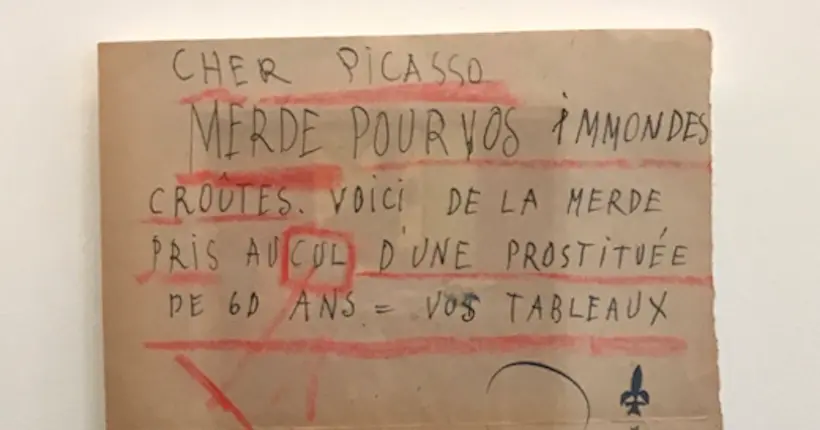 CHER PICASSO
MERDE POUR VOS IMMONDES
CROÛTES. VOICI DE LA MERDE
PRIS AU CUL D'UNE PROSTITUÉE
DE 60 ANS = VOS TABLEAUX